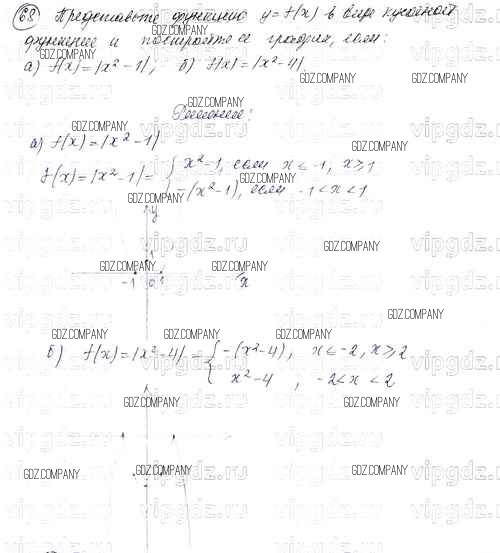 68 Представьте функцию y=f(x) в виде кусочной
функции и постройте ее график, если:
а) f(x)=|x²-1|; б) f(x)=|x²-4|
Решение:
а) f(x)=|x²-1|
f(x)=|x²-1|= { x²-1, если x≤-1, x≥1
-(x²-1), если -1<x<1
y
1
-1 0 1 x
б) f(x)=|x²-4| = { -(x²-4), x≤-2, x≥2
x²-4, -2<x<2
GDZ.COMPANY
vipgdz.ru